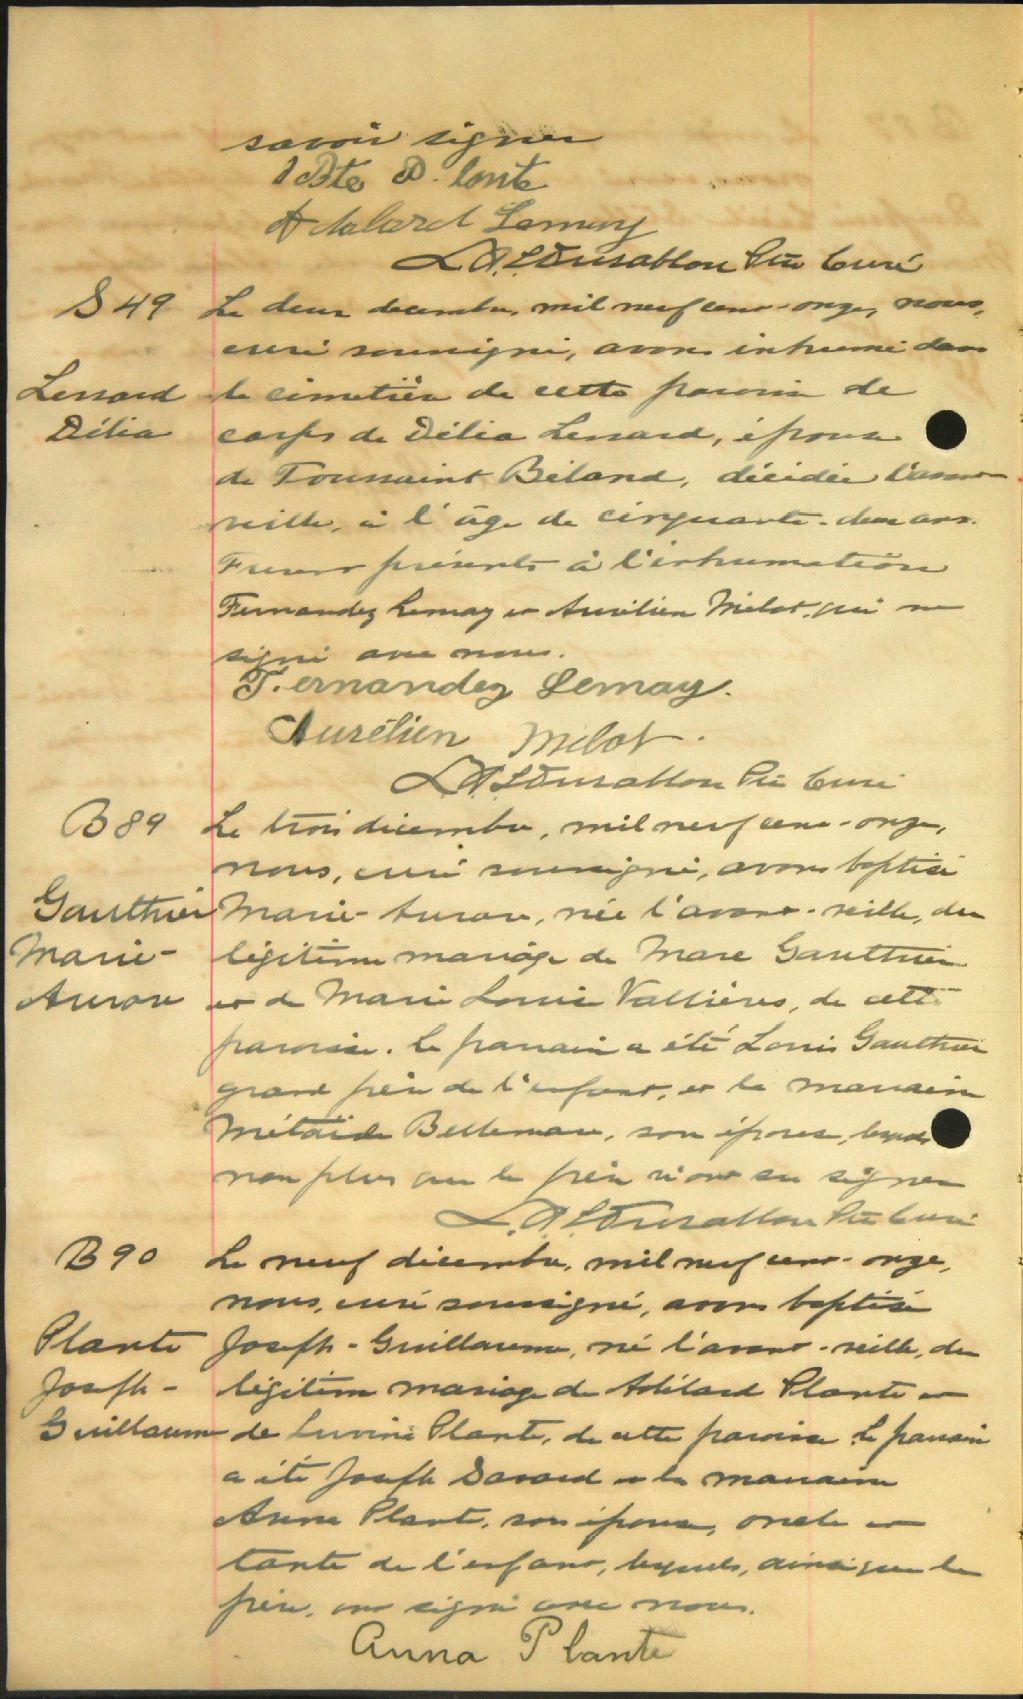 savoir signer
J Bte P. lante
Adelard Lemay
L.A. Dusablon Ptre Curé
S 49
Le deux decembre, mil neuf cent-onze, nous,
curé soussigné, avons inhumé dans
Lessard
le cimetière de cette paroisse le
Délia
corps de Délia Lessard, épouse
de Toussaint Béland, décédée l'avant
veille, à l'âge de cinquante-deux ans.
Furent présents à l'inhumation
Fernandez Lemay et Aurélien Milot, qui ont
signé avec nous.
Fernandez Lemay.
Aurélien Milot.
L.A. Dusablon Ptre Curé
B 89
Le trois décembre, mil neuf cent-onze,
nous, curé soussigné, avons baptisé
Gauthier
Marie-Aurore, née l'avant-veille, du
Marie-
légitime mariage de Marc Gauthier
Aurore
et de Marie Louise Vallières, de cette
paroisse. Le parrain a été Louis Gauthier
grand père de l'enfant, et la marraine
Bellemare, son épouse, lesquels
non plus que le père n'ont su signer
L.A. Dusablon Ptre Curé
B 90
Le neuf décembre, mil neuf cent-onze,
nous, curé soussigné, avons baptisé
Plante
Joseph-Guillaume, né l'avant-veille, du
Joseph-
légitime mariage de Adélard Plante et
Guillaume
de Luvina Plante, de cette paroisse. Le parrain
a été Joseph Savard et la marraine
Anna Plante, son épouse, oncle et
tante de l'enfant, lesquels, ainsi que le
père, ont signé avec nous.
Anna Plante